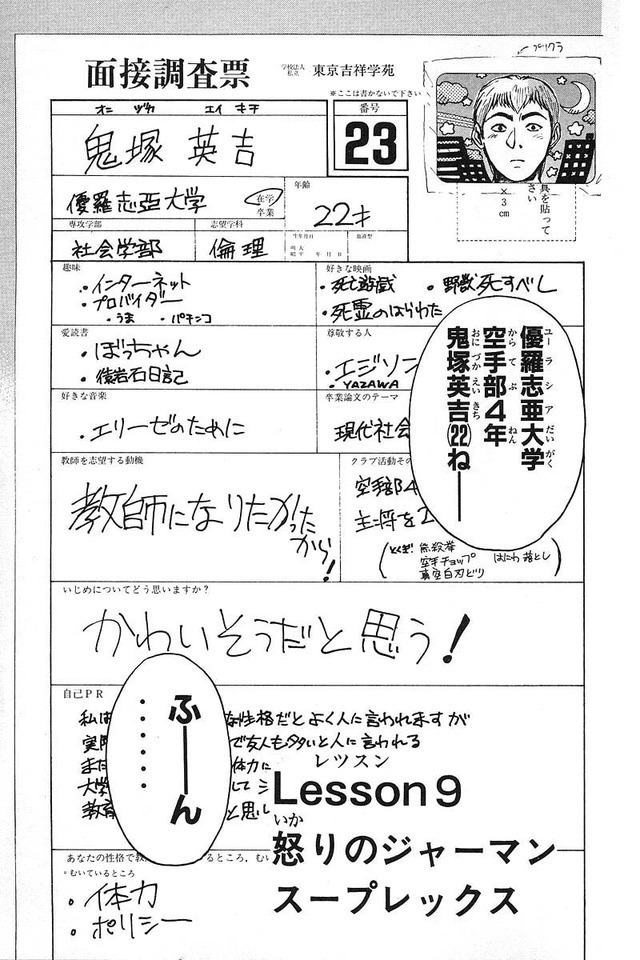 プリクラ
面接調査票
学校法人
私立
東京吉祥学苑
※ここは書かないで下さい
オニ ヅカ エイ キチ
鬼塚 英吉
番号
23
優羅志亜大学
在学
卒業
年齢
22才
専攻学部
社会学部
志望学科
倫理
生年月日
血液型
年 月 日
真を貼って
さい
×3cm
趣味
・インターネット
・プロバイダー
・うま ・パチンコ
好きな映画
・死亡遊戯 ・野獣死すべし
・死霊のはらわた
愛読書
・ぼっちゃん
・猿岩石日記
尊敬する人
・エジソン
・YAZAWA
好きな音楽
・エリーゼのために
卒業論文のテーマ
現代社会
優羅志亜大学
ユーラシアだいがく
空手部4年
からてぶ ねん
鬼塚英吉(22)ねーー
おにづかえいきち
教師を志望する動機
教師になりたかった
から!
クラブ活動その
空手部4
主将を2
とくぎ 無殺拳 はにわ落とし
空手チョップ
真空白刃どり
いじめについてどう思いますか?
かわいそうだと思う!
自己PR
私は
な性格だとよく人に言われますが
実際
で友人も多いと人に言われる
また
体力に
大学
して
教育
と思い
ふーーん
・・・・・・
レッスン
Lesson 9
いか
怒りのジャーマン
スープレックス
あなたの性格で教
いるところ、むい
・むいているところ
・体力
・ポリシー